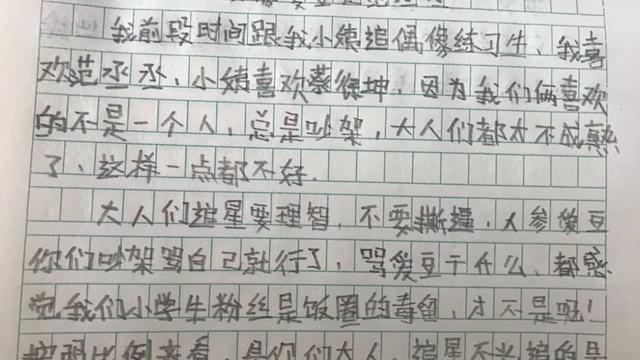 我前段时间跟我小姨追偶像练习生、我喜
欢范丞丞、小姨喜欢蔡徐坤，因为我们俩喜欢
的不是一个人，总是吵架，大人们都太不成熟
了、这样一点都不好.
大人们追星要理智，不要撕逼，人参傻豆
你们吵架骂自己就行了，骂爱豆干什么、都感
觉我们小学生粉丝是饭圈的毒留，才不是呢！
来看，是你们大人，追星不光追丝是